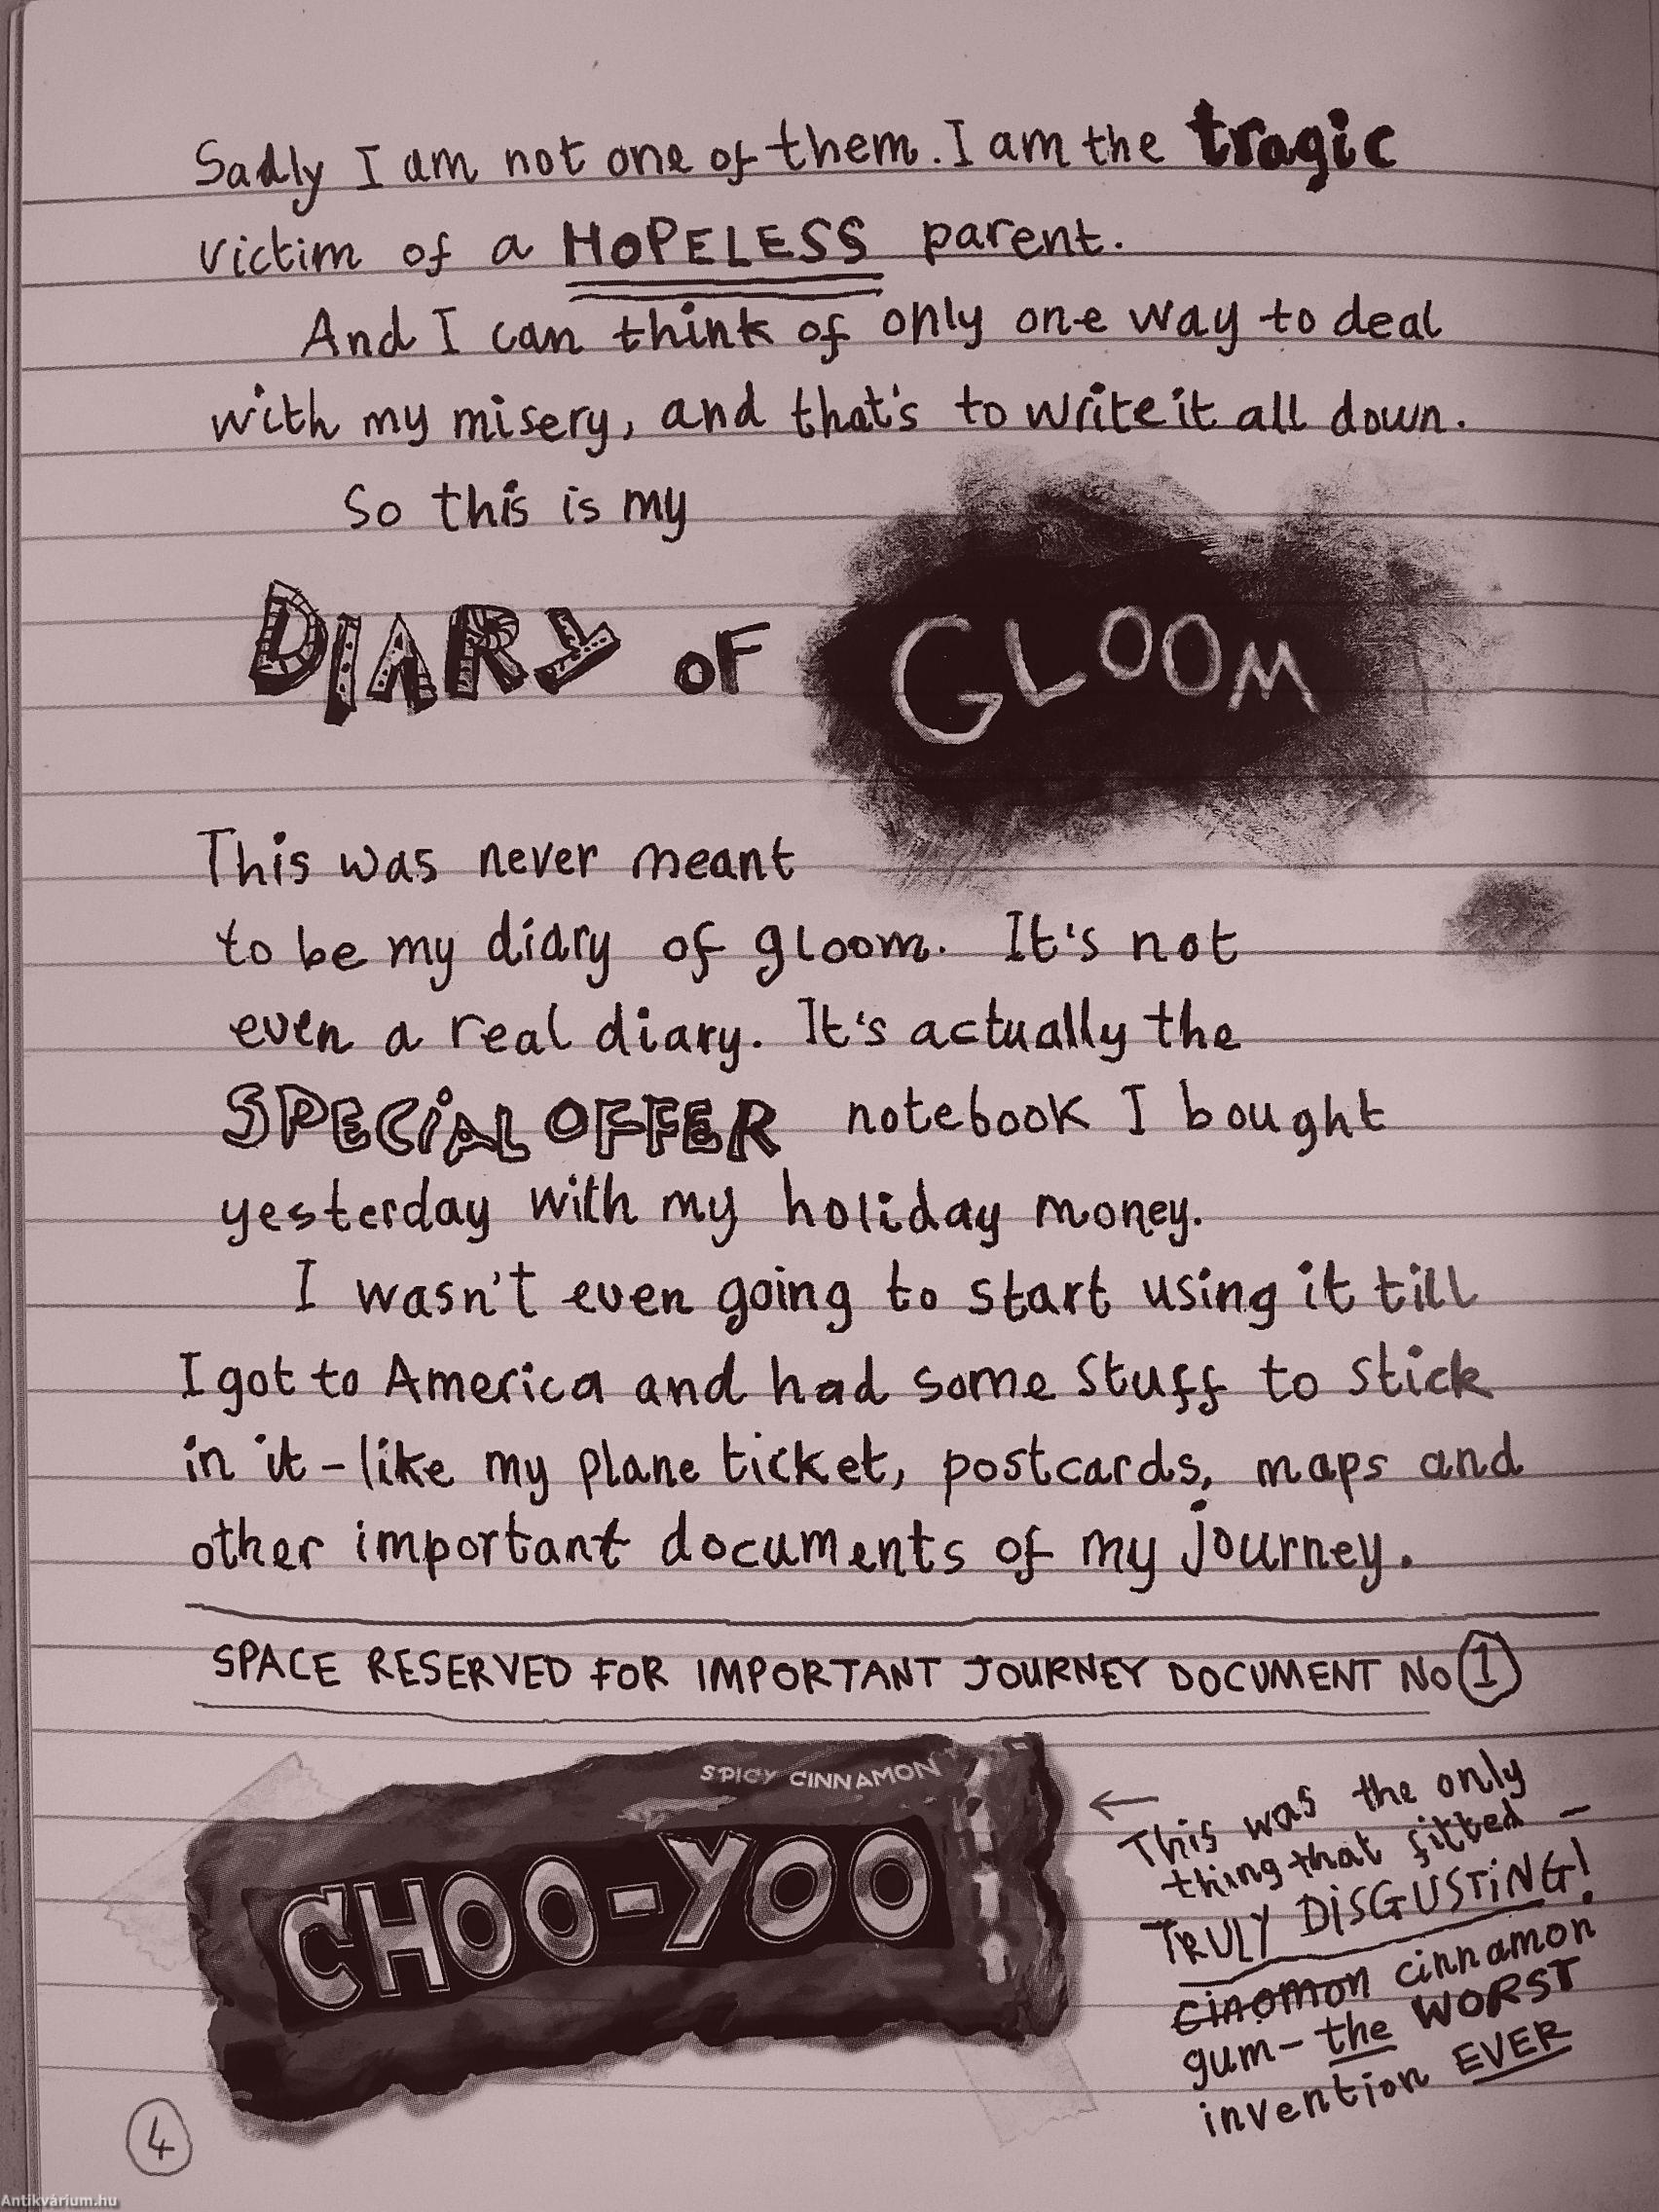 Sadly I am not one of them. I am the tragic
victim of a HOPELESS parent.
And I can think of only one way to deal
with my misery, and that's to write it all down.
So this is my
DIARY OF GLOOM
This was never meant
to be my diary of gloom. It's not
even a real diary. It's actually the
SPECIAL OFFER notebook I bought
yesterday with my holiday money.
I wasn't even going to start using it till
I got to America and had some stuff to stick
in it – like my plane ticket, postcards, maps and
other important documents of my journey.
SPACE RESERVED FOR IMPORTANT JOURNEY DOCUMENT NO 1
SPICY CINNAMON
CHOO-YOO
← This was the only
thing that fitted –
TRULY DISGUSTING!
cinomon cinnamon
gum – the WORST
invention EVER
4
Antikvárium.hu